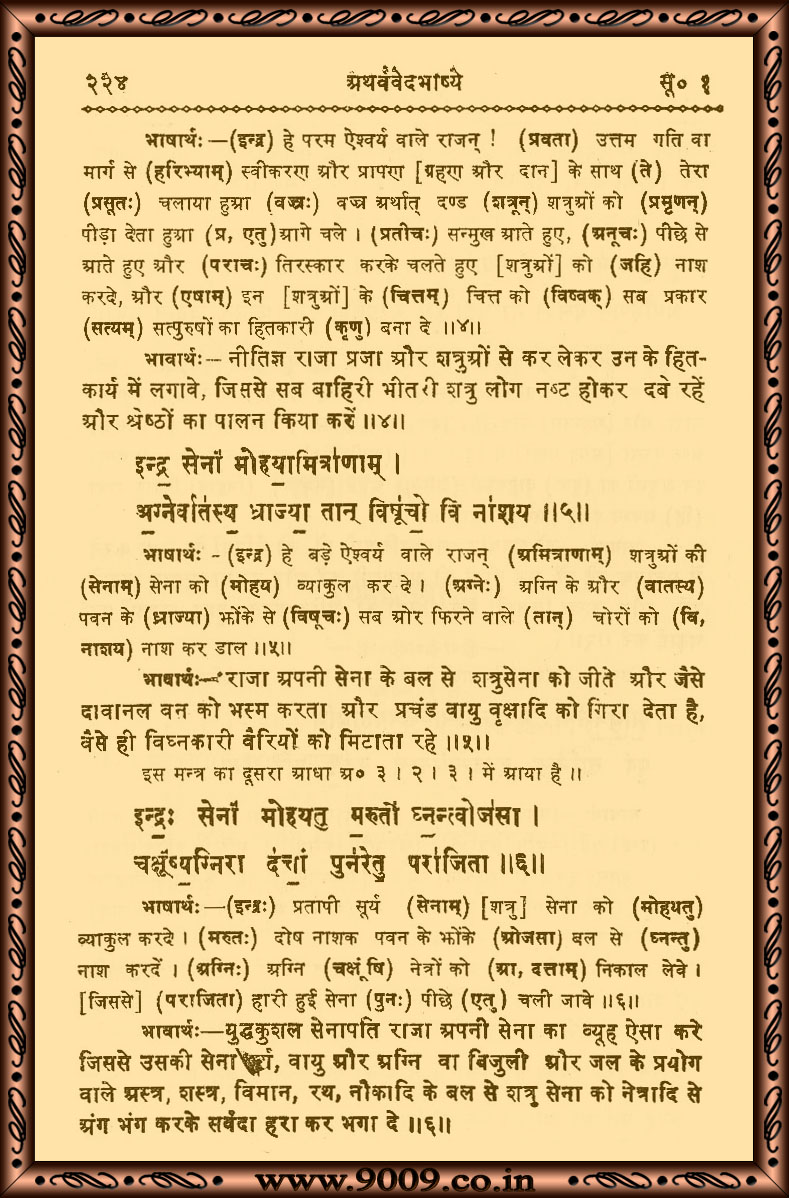 २२४ अथर्ववेदभाष्ये सू० १
भाषार्थः—(इन्द्र) हे परम ऐश्वर्य वाले राजन् ! (प्रवता) उत्तम गति वा
मार्ग से (हरिभ्याम्) स्वीकरण और प्रापण [ग्रहण और दान] के साथ (ते) तेरा
(प्रसूतः) चलाया हुआ (वज्रः) वज्र अर्थात् दण्ड (शत्रून्) शत्रुओं को (प्रमृणन्)
पीड़ा देता हुआ (प्र, एतु) आगे चले । (प्रतीचः) सन्मुख आते हुए, (अनूचः) पीछे से
आते हुए और (पराचः) तिरस्कार करके चलते हुए [शत्रुओं] को (जहि) नाश
करदे, और (एषाम्) इन [शत्रुओं] के (चित्तम्) चित्त को (विष्वक्) सब प्रकार
(सत्यम्) सत्पुरुषों का हितकारी (कृणु) बना दे ॥४॥
भावार्थः—नीतिज्ञ राजा प्रजा और शत्रुओं से कर लेकर उन के हित-
कार्य में लगावे, जिससे सब बाहिरी भीतरी शत्रु लोग नष्ट होकर दबे रहें
और श्रेष्ठों का पालन किया करें ॥४॥
इन्द्र॒ सेनां॑ मोहया॒मित्रा॑णाम् ।
अ॒ग्नेर्वात॑स्य॒ ध्राज्या॒ तान् विषू॑चो॒ वि ना॑शय ॥५॥
भाषार्थः - (इन्द्र) हे बड़े ऐश्वर्य वाले राजन् (अमित्राणाम्) शत्रुओं की
(सेनाम्) सेना को (मोहय) व्याकुल कर दे । (अग्नेः) अग्नि के और (वातस्य)
पवन के (ध्राज्या) झोंके से (विषूचः) सब ओर फिरने वाले (तान्) चोरों को (वि,
नाशय) नाश कर डाल ॥५॥
भावार्थः—राजा अपनी सेना के बल से शत्रुसेना को जीते और जैसे
दावानल वन को भस्म करता और प्रचंड वायु वृक्षादि को गिरा देता है,
वैसे ही विघ्नकारी वैरियों को मिटाता रहे ॥५॥
इस मन्त्र का दूसरा आधा अ० ३ । २ । ३ । में आया है ॥
इन्द्रः॒ सेनां॑ मोहयतु॒ म॒रुतो॑ घ्न॒न्त्वोज॑सा ।
चक्षूं॑ष्य॒ग्निरा द॑त्तां॒ पुन॑रेतु॒ परा॑जिता ॥६॥
भाषार्थः—(इन्द्रः) प्रतापी सूर्य (सेनाम्) [शत्रु] सेना को (मोहयतु)
व्याकुल करदे । (मरुतः) दोष नाशक पवन के झोंके (ओजसा) बल से (घ्नन्तु)
नाश करदें । (अग्निः) अग्नि (चक्षूंषि) नेत्रों को (आ, दत्ताम्) निकाल लेवे ।
[जिससे] (पराजिता) हारी हुई सेना (पुनः) पीछे (एतु) चली जावे ॥६॥
भावार्थः—युद्धकुशल सेनापति राजा अपनी सेना का व्यूह ऐसा करे
जिससे उसकी सेना वायु और अग्नि वा बिजुली और जल के प्रयोग
वाले अस्त्र, शस्त्र, विमान, रथ, नौकादि के बल से शत्रु सेना को नेत्रादि से
अंग भंग करके सर्वदा हरा कर भगा दे ॥६॥
www.9009.co.in